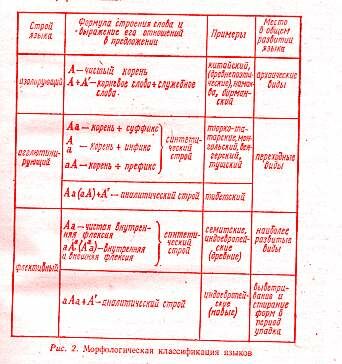 Строй языка
Формула строения слова и выражение его отношений в предложении
Примеры
Место в общем развитии языка
изолирующий
А — чистый корень
А + А′ — корневое слова + служебное слова
китайский,
(древнепоэти-
ческие), намо-
ва, бирман-
ский
архаические
виды
агглютини-
рующий
Аа — корень + суффикс
А
а — корень + инфикс
аА — корень + префикс
синтети-
ческий
строй
тюрко-та-
тарские, мон-
гольский, вен-
герский,
тушский
переходные
виды
Аа (аА) + А′ — аналитический строй
тибетский
флективный
Аа — чистая внутрен-
няя флексия
аАᵃ(Аᵃа) — внутренняя
и внешняя флексия
синтети-
ческий
строй
семитские,
индоевропей-
ские
(древние)
наиболее
развитые
виды
аАа + А′ — аналитический строй
индоевропей-
ские
(новые)
выветри-
вание и
стирание
форм в
период
упадка
Рис. 2. Морфологическая классификация языков